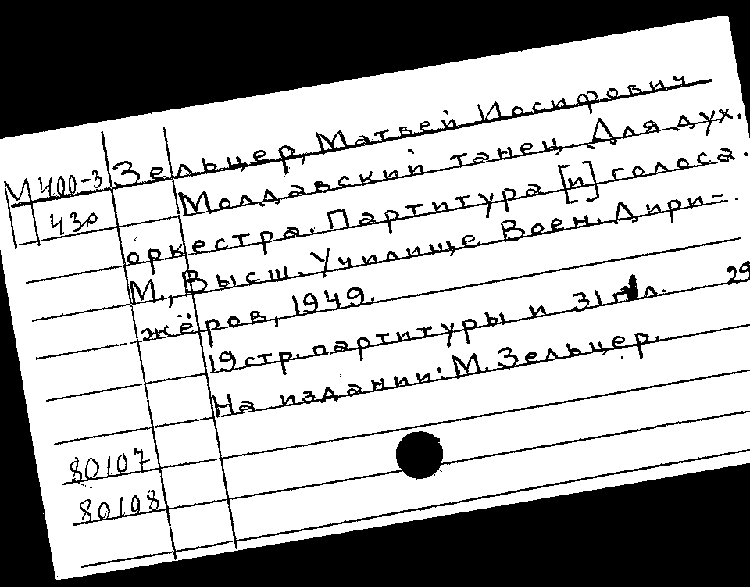 Зельцер, Матвей Иосифович
М 400-3
430
Молдавский танец. Для дух.
оркестра. Партитура [и] голоса.
М., Высш. Училище Воен. Дири-
жёров, 1949.
19 стр. партитуры и 31 л. 29
На издании: М. Зельцер.
80107
80108